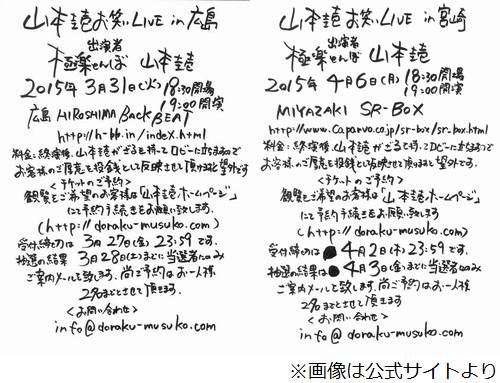 山本圭壱お笑いLIVE in 広島
出演者
極楽とんぼ 山本圭壱
2015年 3月31日(火) 18:30開場
19:00開演
広島 HIROSHIMA BACK BEAT
http://h-bb.in/index.html
料金:終演後、山本圭壱がざるを持ってロビーに立ちますので
お客様のご厚意を投銭として反映させて頂ければと望外です
<チケットのご予約>
観覧をご希望のお客様は「山本圭壱ホームページ」
にて予約手続きをお願い致します。
(http://doraku-musuko.com)
受付締切は 3月27日(金) 23:59です。
抽選の結果 3月28日(土)までに当選者にのみ
ご案内メールを致します。尚ご予約はお一人様
2枚までとさせて頂きます。
<お問い合わせ>
info@doraku-musuko.com
山本圭壱お笑いLIVE in 宮崎
出演者
極楽とんぼ 山本圭壱
2015年 4月6日(月) 18:30開場
19:00開演
MIYAZAKI SR-BOX
http://www.caparvo.co.jp/sr-box/sr-box.html
料金:終演後、山本圭壱がざるを持ってロビーに立ちますので
お客様のご厚意を投銭として反映させて頂ければと望外です。
<チケットのご予約>
観覧をご希望のお客様は「山本圭壱ホームページ」
にて予約手続きをお願い致します。
(http://doraku-musuko.com)
受付締切は 4月2日(木) 23:59です。
抽選の結果は 4月3日(金)までに当選者にのみ
ご案内メールを致します。尚ご予約はお一人様
2枚までとさせて頂きます
<お問い合わせ>
info@doraku-musuko.com
※画像は公式サイトより